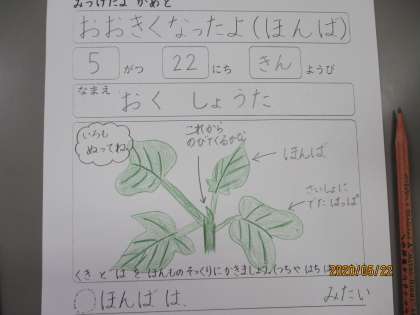 みつけたよ かあど
おおきくなったよ(ほんば)
5 がつ 22 にち きん ようび
なまえ おく しょうた
いろも
ぬってね。
これから
のびてくるかな
ほんば
さいしょに
でた はっぱ
くき と は を ほんものそっくりに かきましょう。(つちや はち
2020/05/22
ほんば は、
みたい